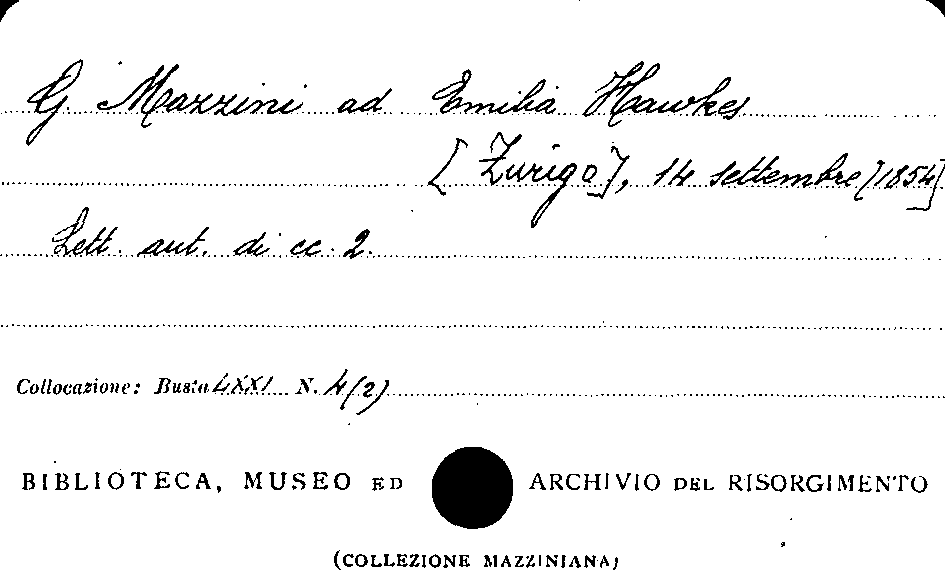 G. Mazzini ad Emilia Hawkes
[Zurigo], 14 settembre [1854]
Lett. aut. di cc. 2.
Collocazione: Busta LXXI N. 4(2)
BIBLIOTECA, MUSEO ED ARCHIVIO DEL RISORGIMENTO
(COLLEZIONE MAZZINIANA)